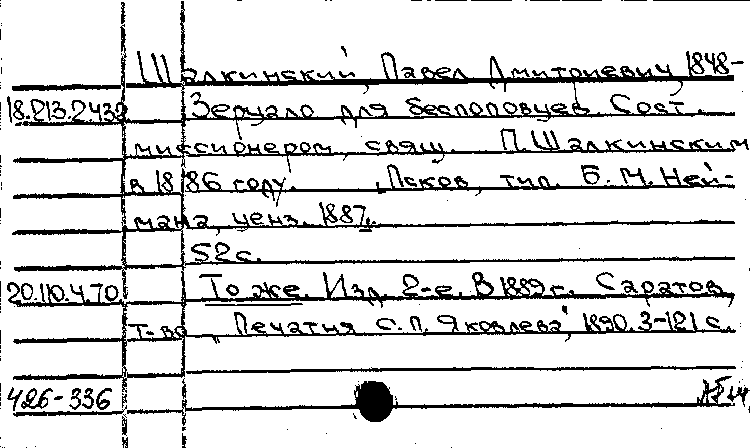 Шалкинский, Павел Дмитриевич, 1848-
18.213.2.439 Зерцало для беспоповцев. Сост.
миссионером, свящ. П. Шалкинским
в 1886 году. Псков, тип. Б. М. Ней-
мана, ценз. 1887.
52 с.
20.110.4.70 То же. Изд. 2-е. В 1889 г. Саратов,
т-во „Печатня С. П. Яковлева", 1890. 3-121 с.
426-336